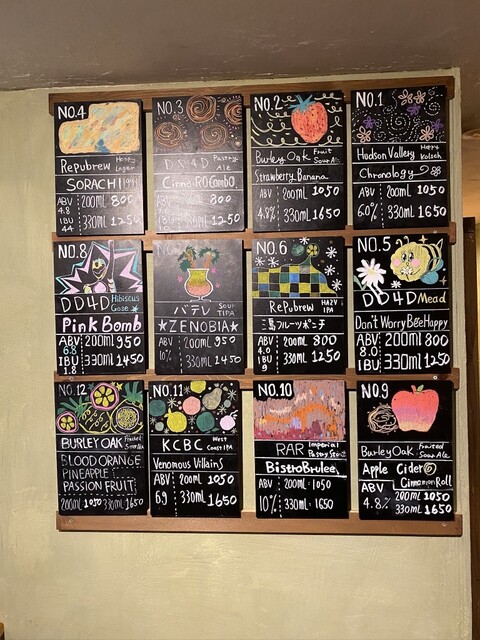 NO.4
Repubrew Hoppy Lager
SORACHI 1984
ABV 4.8 200ml 800
IBU 44 330ml 1250
NO.3
DD4D Pastry Ale
CinnaROCombo
ABV 200ml 800
330ml 1250
NO.2
Burley Oak Fruit Sour Ale
Strawberry Banana
ABV 200ml 1050
4.9% 330ml 1650
NO.1
Hudson Valley Kölsch
Chronology
ABV 200ml 1050
6.0% 330ml 1650
NO.8
DD4D Hibiscus Gose
Pink Bomb
ABV 6.8 200ml 950
IBU 1.8 330ml 1450
バテレ Sour TIPA
★ZENOBIA★
ABV 200ml 950
10% 330ml 1450
NO.6
Repubrew HAZY IPA
三島フルーツポンチ
ABV 4.0 200ml 800
IBU 9 330ml 1250
NO.5
DD4D Mead
Don't Worry Bee Happy
ABV 8.0 200ml 800
IBU 330ml 1250
NO.12
BURLEY OAK Fruited
BLOOD ORANGE
PINEAPPLE
PASSION FRUIT
200ml 1050 330ml 1650
NO.11
KCBC West Coast IPA
Venomous Villains
ABV 200ml 1050
6.9 330ml 1650
NO.10
RAR Imperial Pastry Stout
BistroBrulee
ABV 200ml 1050
10% 330ml 1650
NO.9
Burley Oak Fruited Sour Ale
Apple Cider
Cinnamon Roll
ABV 200ml 1050
4.8% 330ml 1650